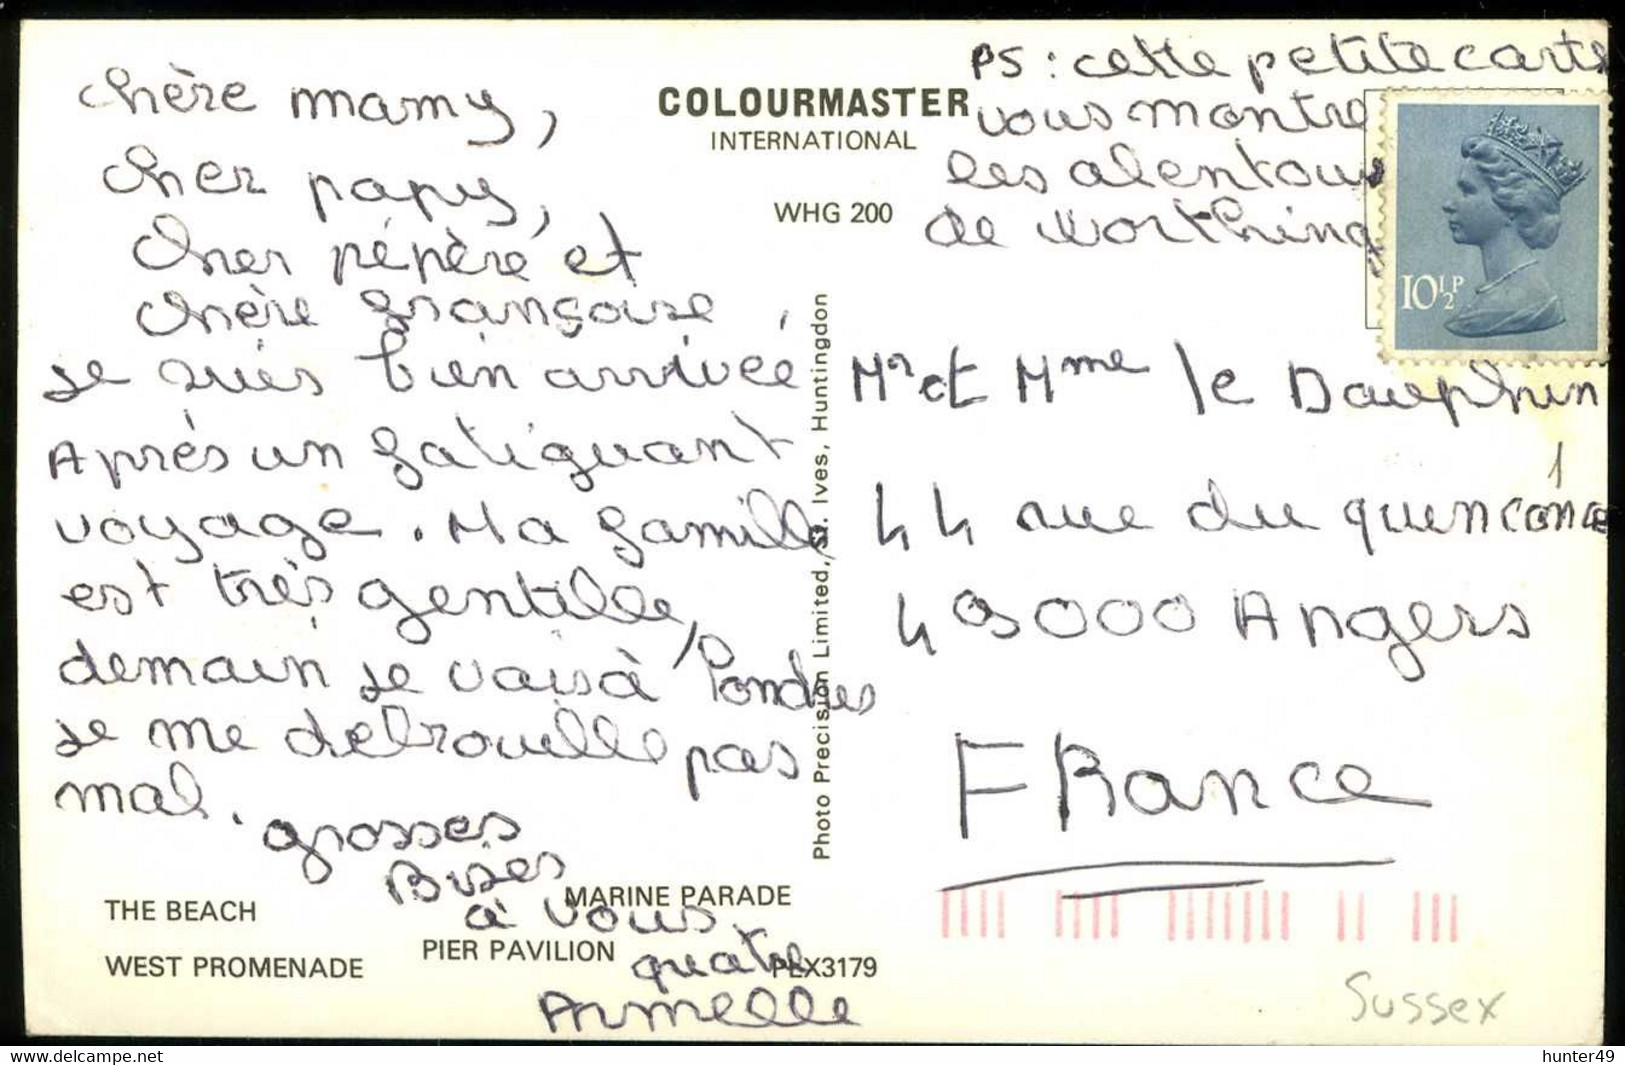 chère mamy,
cher papy,
cher pépère et
chère françoise,
je suis bien arrivée
Après un fatiguant
voyage. Ma famille
est très gentille,
demain je vais à Londres
je me debrouille pas
mal. grosses
Bises
à vous
quatre
Armelle
COLOURMASTER
INTERNATIONAL
WHG 200
PS : cette petite carte
vous montre
les alentour
de Worthing
10½P
Mr et Mme le Dauphin
44 rue du quinconce
49000 Angers
FRance
Photo Precision Limited, St. Ives, Huntingdon
THE BEACH
MARINE PARADE
WEST PROMENADE
PIER PAVILION
PLX3179
Sussex
www.delcampe.net
hunter49